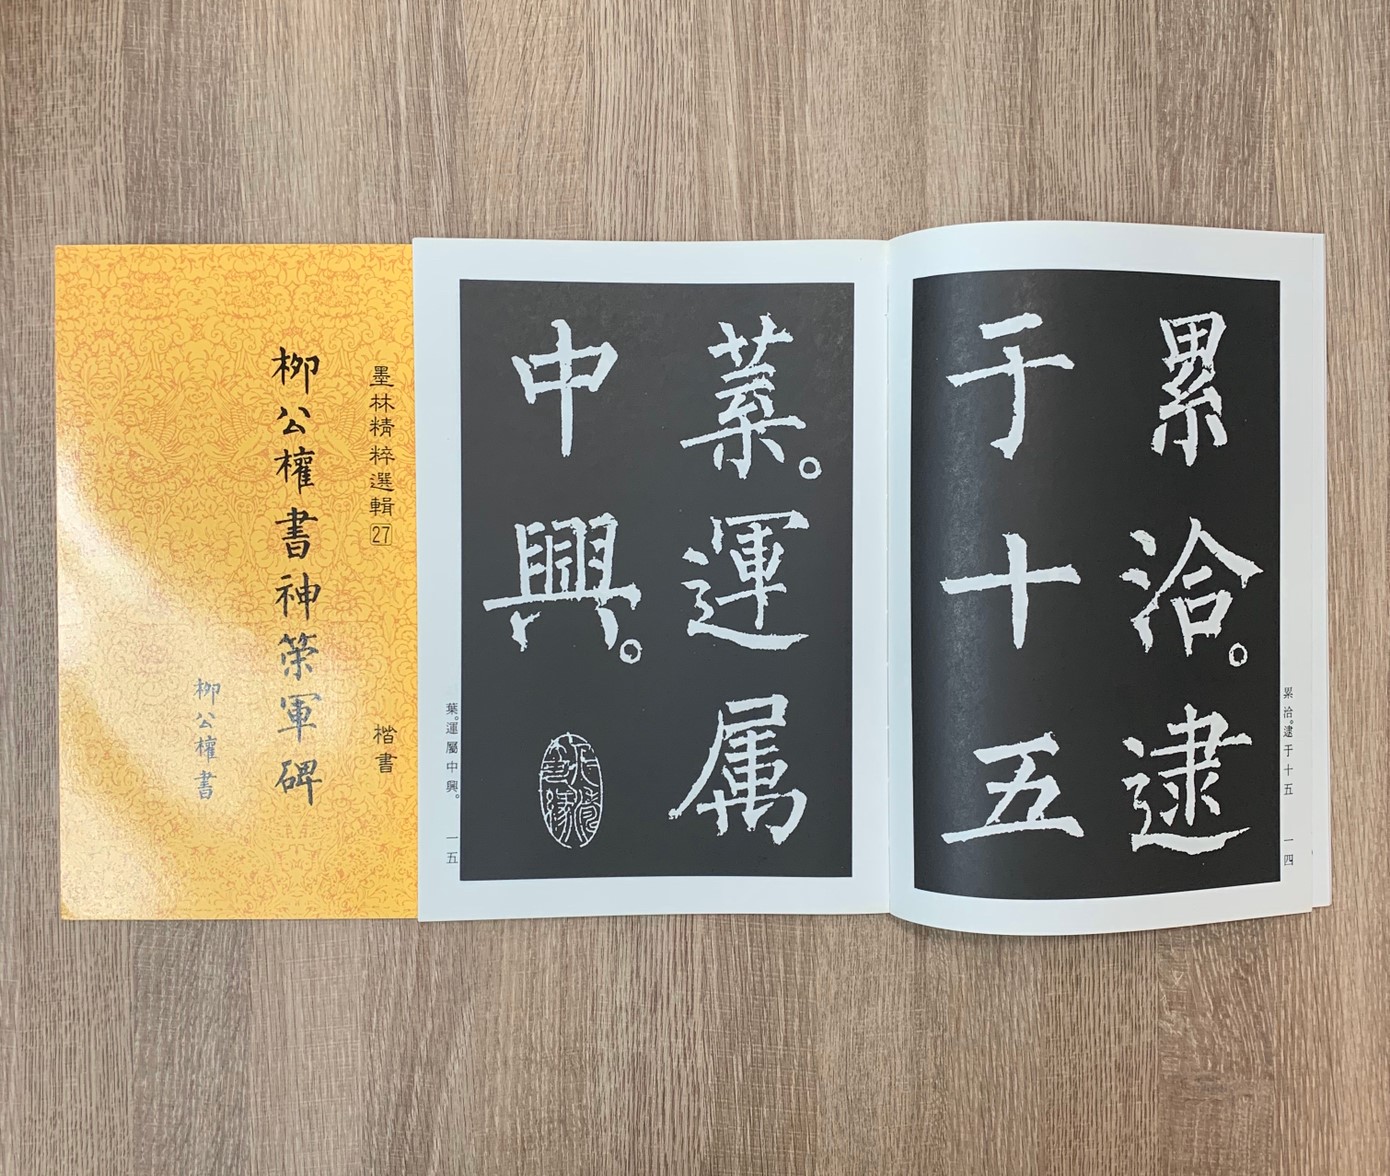 墨林精粹選輯27
楷書
柳公權書神策軍碑
柳公權書
累洽。逮
于十五
累洽。逮于十五
一四
葉。運属
中興。
葉。運屬中興。
一五